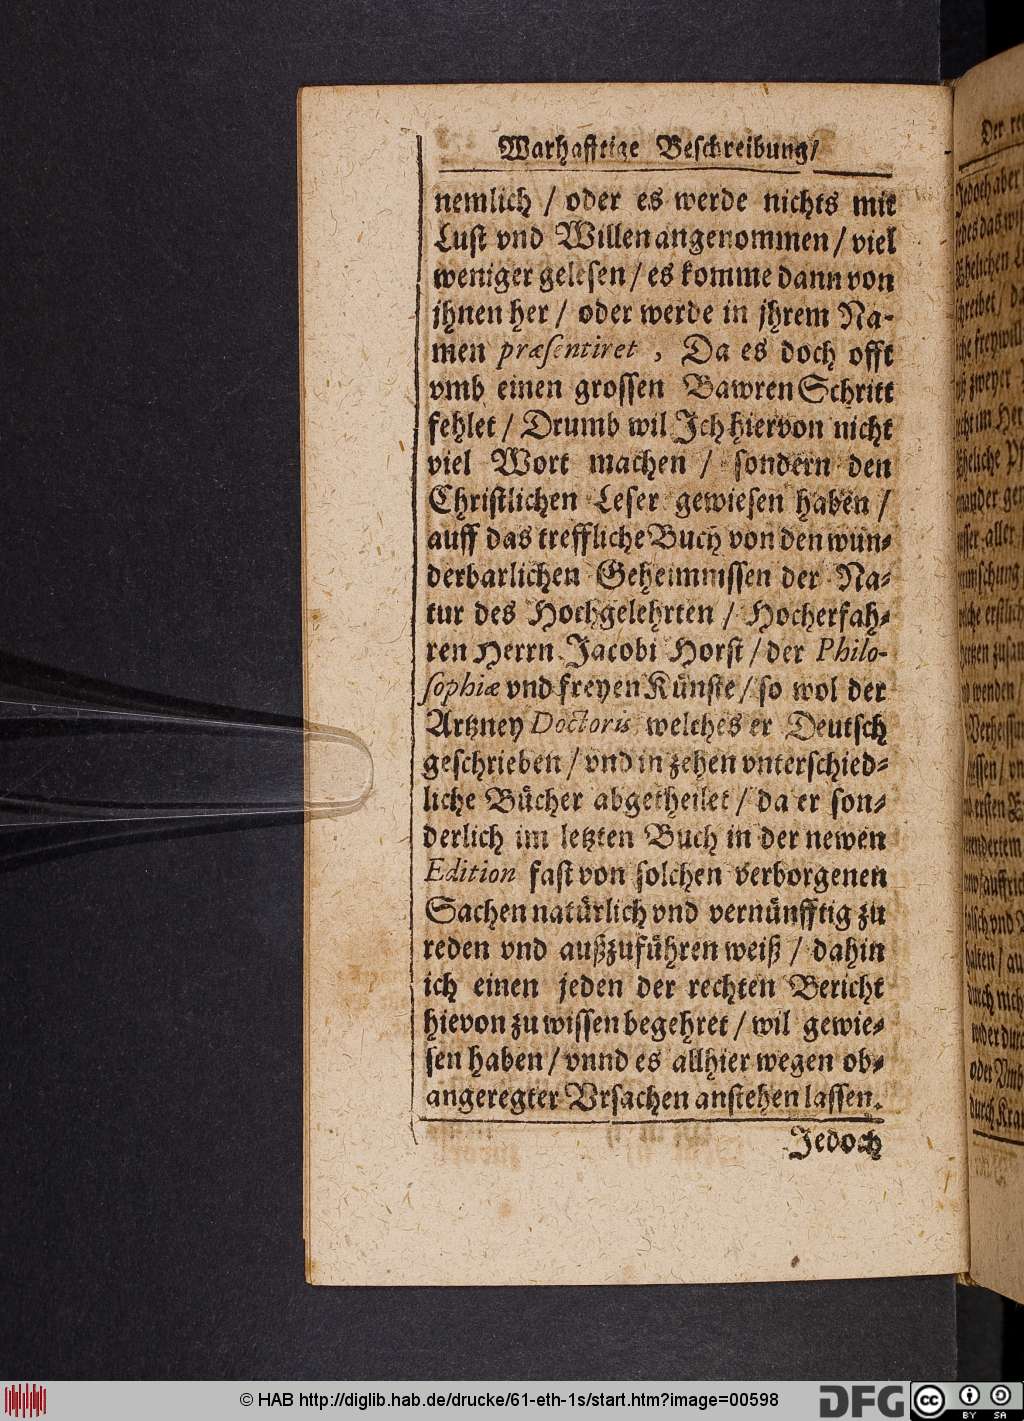 Warhafftige Beschreibung/
nemlich / oder es werde nichts mit
Lust vnd Willen angenommen / viel
weniger gelesen / es komme dann von
jhnen her / oder werde in jhrem Na-
men præsentiret , Da es doch offt
vmb einen grossen Bawren Schritt
fehlet / Drumb wil Jch hiervon nicht
viel Wort machen / sondern den
Christlichen Leser gewiesen haben /
auff das treffliche Buch von den wun-
derbarlichen Geheimnissen der Na-
tur des Hochgelehrten / Hocherfah-
ren Herrn Jacobi Horst / der Philo-
sophiæ vnd freyen Künste / so wol der
Artzney Doctoris welches er Deutsch
geschrieben / vnd in zehen vnterschied-
liche Bücher abgetheilet / da er son-
derlich im letzten Buch in der newen
Edition fast von solchen verborgenen
Sachen natürlich vnd vernünfftig zu
reden vnd außzuführen weiß / dahin
ich einen jeden der rechten Bericht
hievon zu wissen begehret / wil gewie-
sen haben / vnnd es allhier wegen ob-
angeregter Vrsachen anstehen lassen.
Jedoch
© HAB http://diglib.hab.de/drucke/61-eth-1s/start.htm?image=00598
DFG
cc BY SA